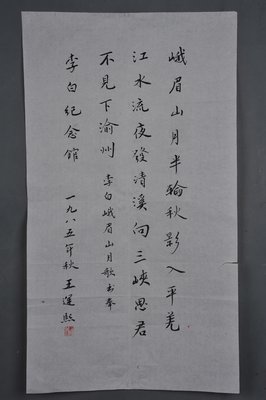 峨眉山月半輪秋影入平羌
江水流夜發清溪向三峽思君
不見下渝州 李白峨眉山月歌书奉
李白纪念館
一九八五年秋王運熙